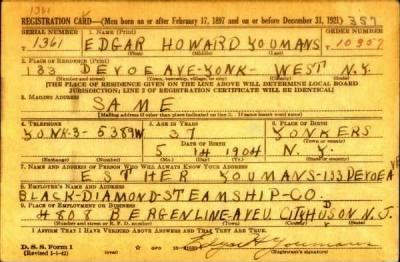 1361
REGISTRATION CARD—(Men born on or after February 17, 1897 and on or before December 31, 1921) 387
SERIAL NUMBER 1. NAME (Print) ORDER NUMBER
1361 EDGAR HOWARD YOUMANS 10957
(First) (Middle) (Last)
2. PLACE OF RESIDENCE (Print)
133 DEVOE AVE-YONK- WEST N.Y.
(Number and street) (Town, township, village, or city) (County) (State)
[THE PLACE OF RESIDENCE GIVEN ON THE LINE ABOVE WILL DETERMINE LOCAL BOARD
JURISDICTION; LINE 2 OF REGISTRATION CERTIFICATE WILL BE IDENTICAL]
3. MAILING ADDRESS
SAME
[Mailing address if other than place indicated on line 2. If same insert word same]
4. TELEPHONE 5. AGE IN YEARS 6. PLACE OF BIRTH
YONK-3-5389W 37 YONKERS
DATE OF BIRTH (Town or county)
5 14 1904 N.Y.
(Exchange) (Number) (Mo.) (Day) (Yr.) (State or country)
7. NAME AND ADDRESS OF PERSON WHO WILL ALWAYS KNOW YOUR ADDRESS
ESTHER YOUMANS-133 DEVOE AVE
8. EMPLOYER'S NAME AND ADDRESS
BLACK-DIAMOND-STEAMSHIP-CO.
9. PLACE OF EMPLOYMENT OR BUSINESS
#808 BERGENLINE AVE U. CITY HUDSON N.J.
(Number and street or R. F. D. number) (Town) (County) (State)
I AFFIRM THAT I HAVE VERIFIED ABOVE ANSWERS AND THAT THEY ARE TRUE.
D. S. S. Form 1
(Revised 1-1-42) (over) Edgar H Youmans
(Registrant's signature)